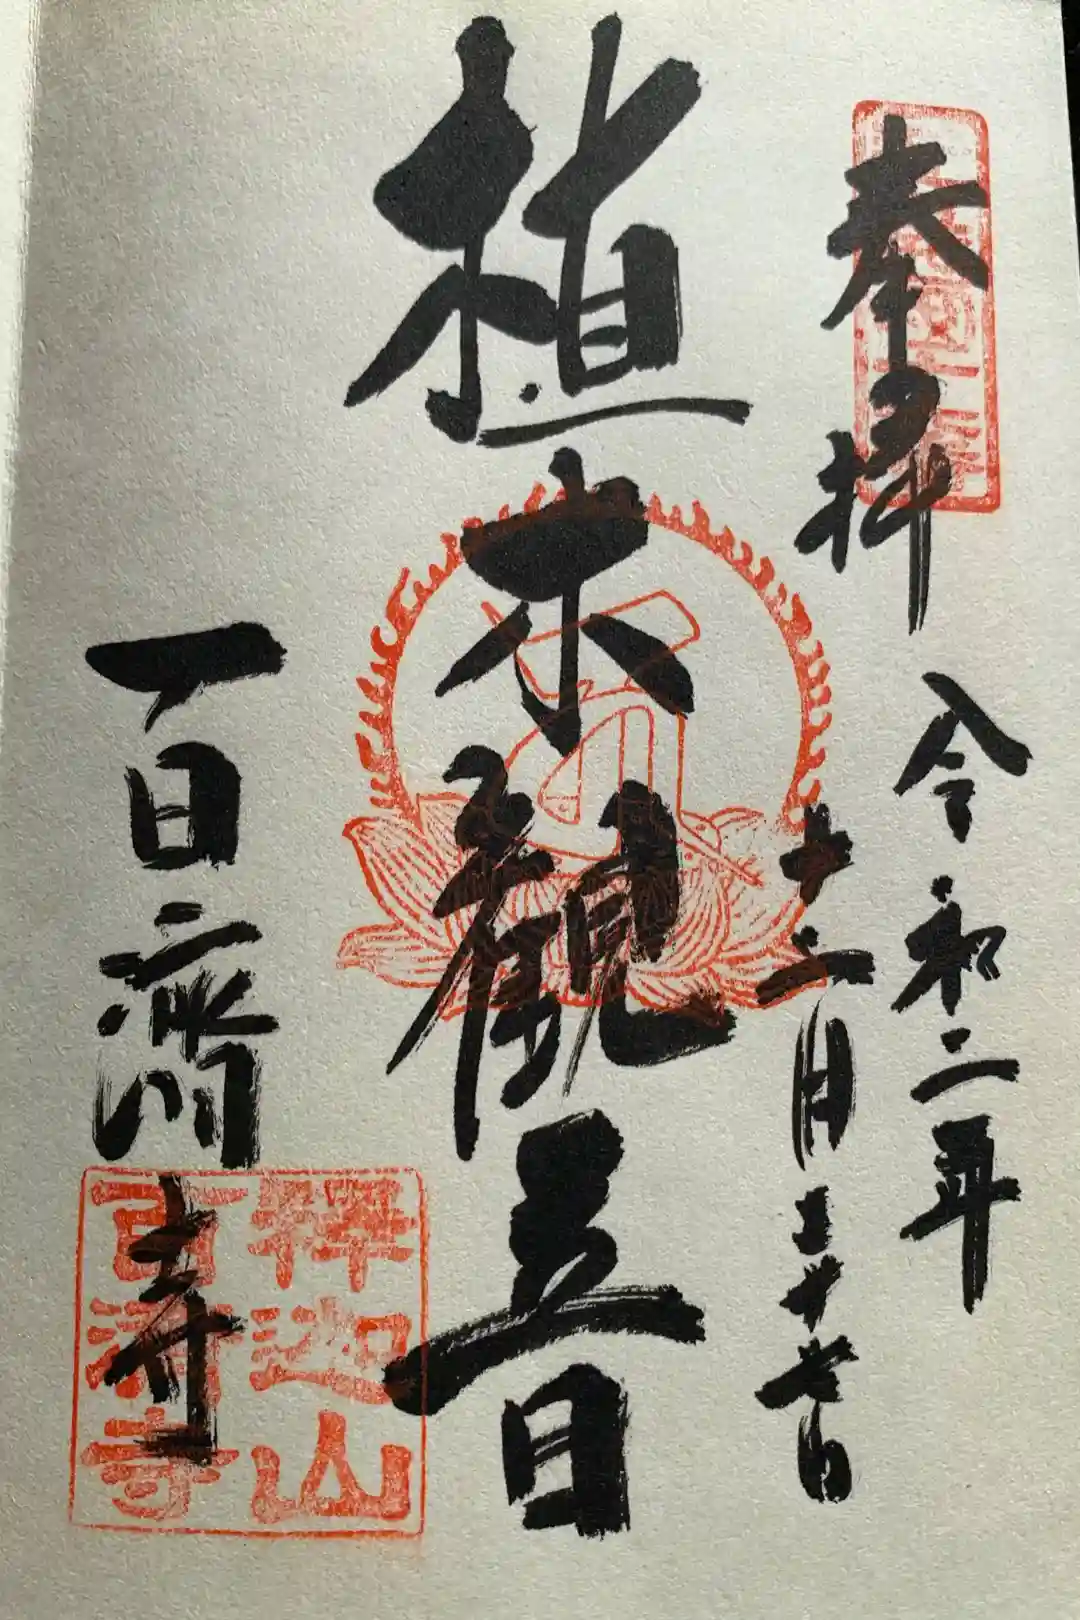 奉拝
令和二年
十二月二十 日
植木観音
百濟寺
釋迦山
百濟寺